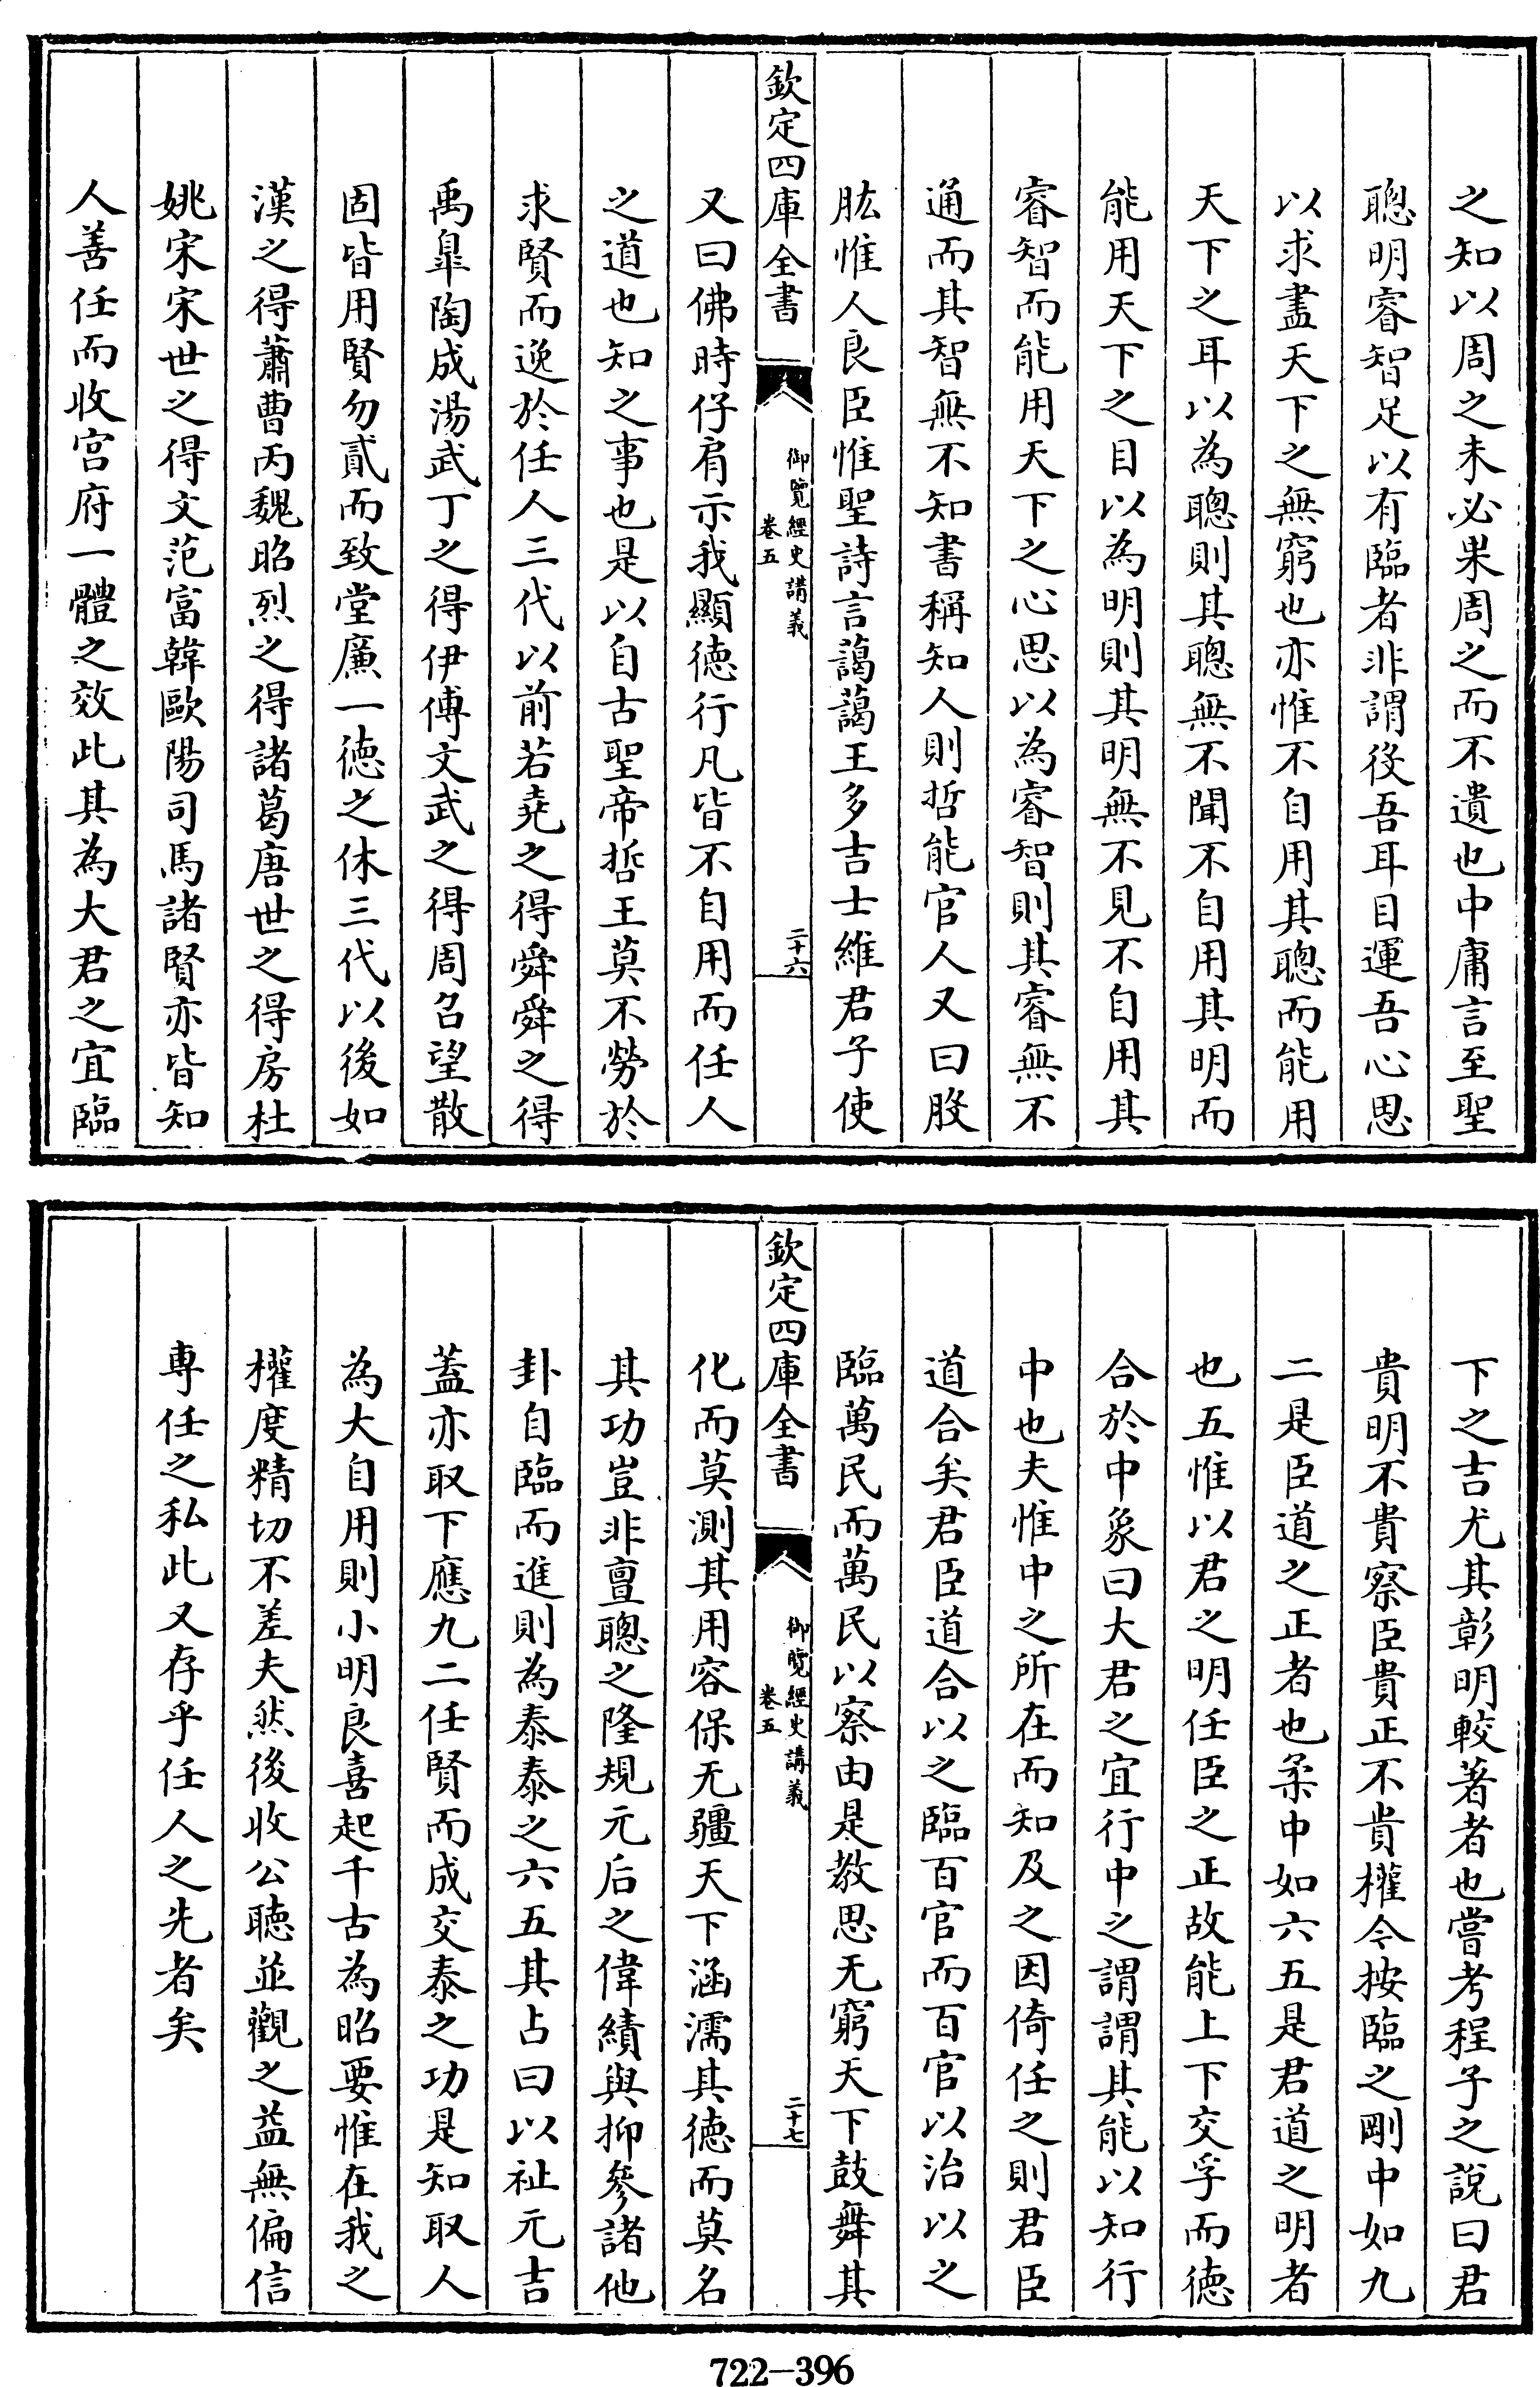 之知以周之未必果周之而不遺也中庸言至聖
聰明睿智足以有臨者非謂役吾耳目運吾心思
以求盡天下之無窮也亦惟不自用其聰而能用
天下之耳以為聰則其聰無不聞不自用其明而
能用天下之目以為明則其明無不見不自用其
睿智而能用天下之心思以為睿智則其睿無不
通而其智無不知書稱知人則哲能官人又曰股
肱惟人良臣惟聖詩言藹藹王多吉士維君子使
欽定四庫全書
御覽經史講義
卷五
二十六
又曰佛時仔肩示我顯德行凡皆不自用而任人
之道也知之事也是以自古聖帝哲王莫不勞於
求賢而逸於任人三代以前若堯之得舜舜之得
禹臯陶成湯武丁之得伊傅文武之得周召望散
固皆用賢勿貳而致堂廉一德之休三代以後如
漢之得蕭曹丙魏昭烈之得諸葛唐世之得房杜
姚宋宋世之得文范富韓歐陽司馬諸賢亦皆知
人善任而收宫府一體之效此其為大君之宜臨
下之吉尤其彰明較著者也嘗考程子之說曰君
貴明不貴察臣貴正不貴權今按臨之剛中如九
二是臣道之正者也柔中如六五是君道之明者
也五惟以君之明任臣之正故能上下交孚而德
合於中象曰大君之宜行中之謂謂其能以知行
中也夫惟中之所在而知及之因倚任之則君臣
道合矣君臣道合以之臨百官而百官以治以之
臨萬民而萬民以察由是教思无窮天下鼓舞其
欽定四庫全書
御覽經史講義
卷五
二十七
化而莫測其用容保无疆天下涵濡其德而莫名
其功豈非亶聰之隆規元后之偉績與抑參諸他
卦自臨而進則為泰泰之六五其占曰以祉元吉
蓋亦取下應九二任賢而成交泰之功是知取人
為大自用則小明良喜起千古為昭要惟在我之
權度精切不差夫然後收公聽並觀之益無偏信
專任之私此又存乎任人之先者矣
722—396